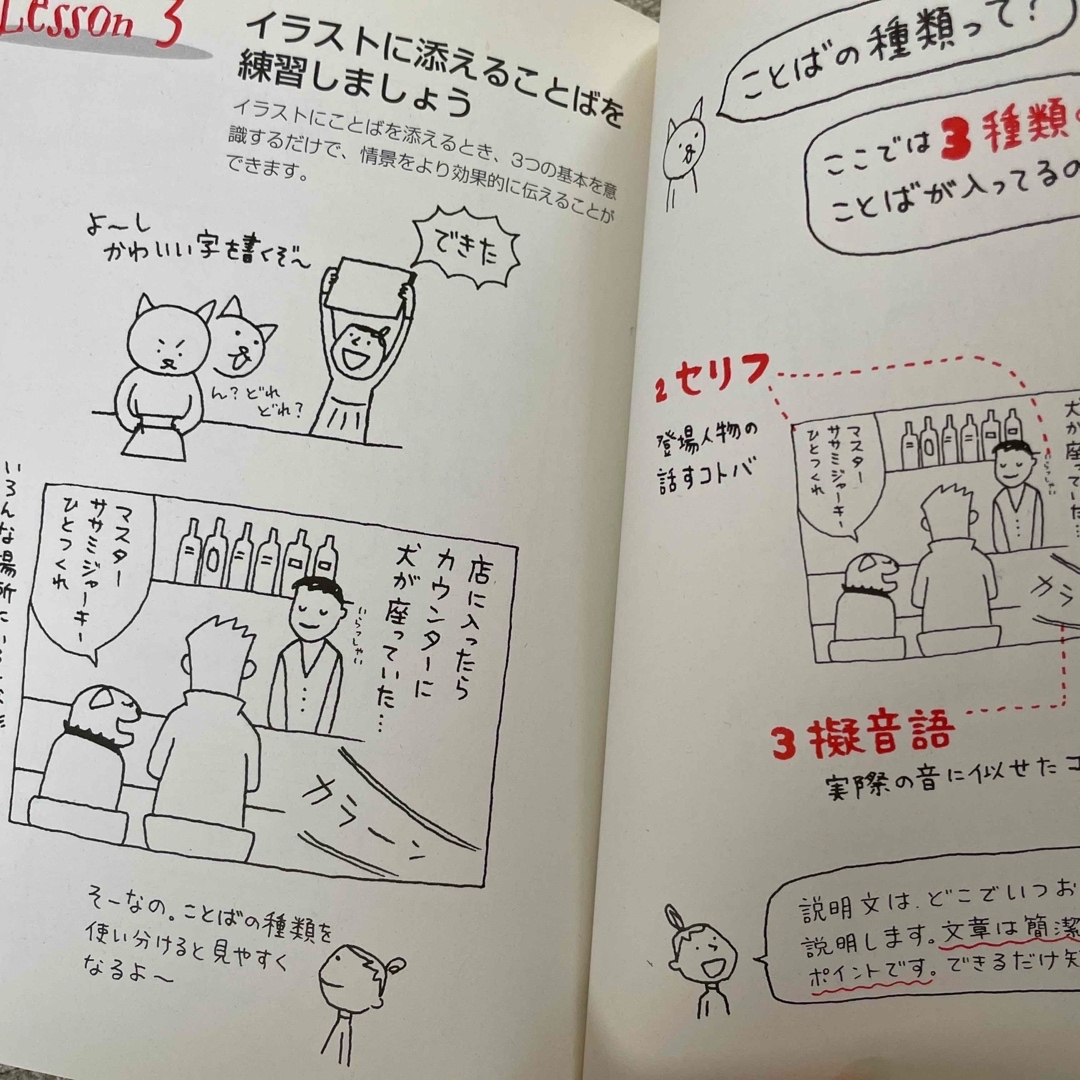 Lesson 3
イラストに添えることばを
練習しましょう
イラストにことばを添えるとき、3つの基本を意
識するだけで、情景をより効果的に伝えることが
できます。
よ〜し
かわいい字を書くぞ〜
できた
ん?どれ
どれ?
マスター
ササミジャーキー
ひとつくれ
店に入ったら
カウンターに
犬が座っていた…
いらっしゃい
カラーン
そーなの。ことばの種類を
使い分けると見やすく
なるよ〜
ことばの種類って?
ここでは3種類の
ことばが入ってるの
2 セリフ
登場人物の
話すコトバ
マスター
ササミジャーキー
ひとつくれ
犬が座っていた…
いらっしゃい
カラ
3 擬音語
実際の音に似せたコ
説明文は、どこでいつお
説明します。文章は簡潔
ポイントです。できるだけ短